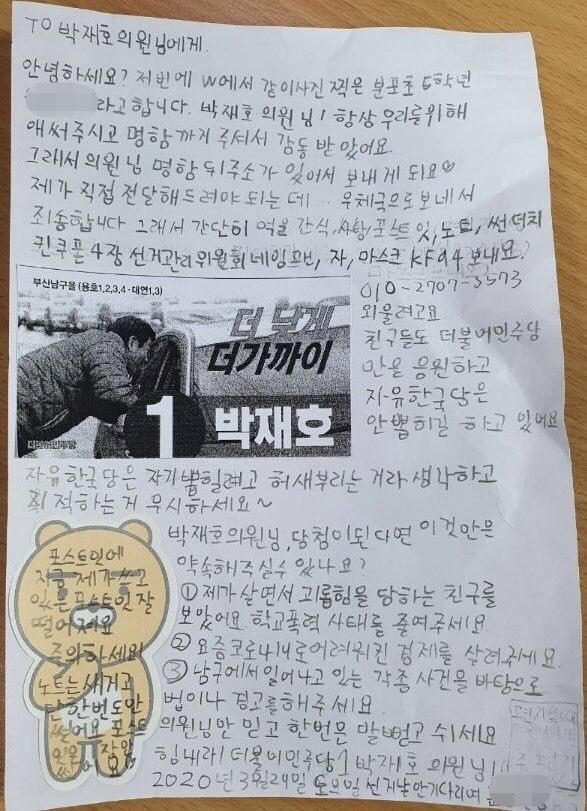 TO 박재호의원님에게.
안녕하세요? 저번에 W에서 같이사진 찍은 분포초 5학년
라고합니다. 박재호 의원님! 항상 우리를위해
애써주시고 명함까지 주셔서 감동 받았어요.
그래서 의원님 명함 뒤주소가 있어서 보내게 되요
제가 직접 전달해드려야 되는데... 우체국으로보내서
죄송합니다 그래서 간단히 먹을 간식, 사탕, 포스트잇, 노트, 썬더치
킨쿠폰 4장 선거관리위원회 네임프빈, 자, 마스크 KF94 보내요.
부산남구을 (용호1,2,3,4·대연1,3)
더 낮게
더가까이
1 박재호
더불어민주당
010-2707-3573
외울려고요
친구들도 더불어민주당
만을 응원하고
자유한국당은
안뽑히길 하고 있어요
자유한국당은 자기뽑힐려고 허새부리는 거라 생각하고
지적하는거 무시하세요~
박재호의원님, 당첨이된다면 이것만은
약속해주실수 있나요?
① 제가 살면서 괴롭힘을 당하는 친구를
보았어요 학교폭력 사태를 줄여주세요
② 요즘코로나로어려워진 경제를 살려주세요.
③ 남구에서일어나고 있는 각종 사건을 바탕으로
법이나 경고를해주세요
의원님만 믿고 한번은 말뻗고 쉬세요
힘내라! 더불어민주당 1 박재호 의원님!!
2020년 3월24일 토요일 선거날만기다리며
포스트잇에
지금 제가쓰고
있는포스트잇 잘
떨어져요
주의하세요!
노트는새거고
단한번도안
썼어요 포스트
잇은
썼어요